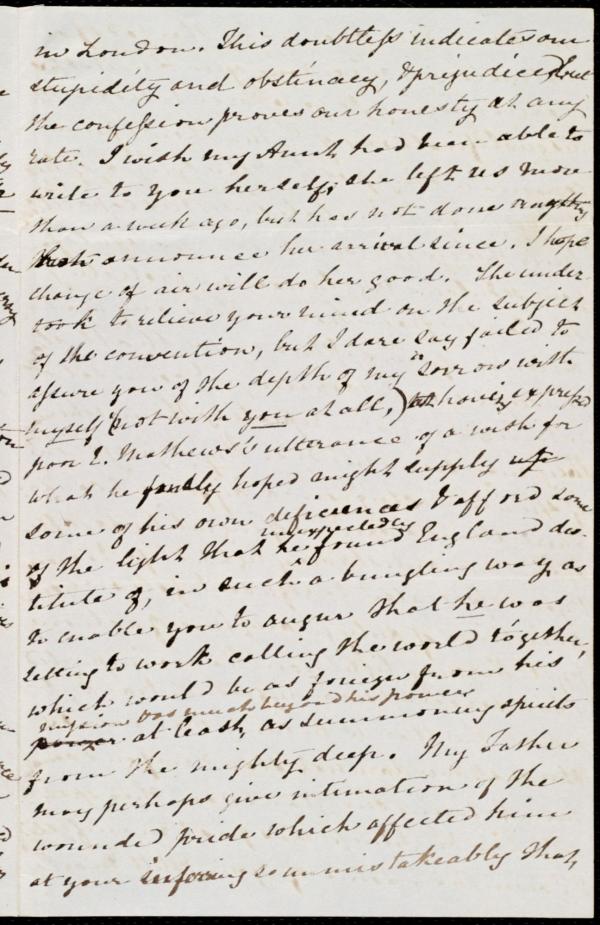 in London. This doubtless indicates our
stupidity and obstinacy, & prejudice, but
the confession proves our honesty at any
rate. I wish my Aunt had been able to
write to you herself; she left us more
than a week ago, but has not done anything
but announce her arrival since. I hope
change of air will do her good. She under-
took to relieve your mind on the subject
of the convention, but I dare say failed to
assure you of the depth of my sorrow with
myself (not with you at all,) at having expressed
poor E. Mathews's utterance of a wish for
what he fondly hoped might supply
some of his own deficiences & afford some
of the light that he unexpectedly found England des-
titute of, in such a bungling way as
to enable you to augur that he was
setting to work calling the world together,
which would be as foreign from his
mission & as much beyond his powers
power at least, as summoning spirits
from the mighty deep. My Father
may perhaps give intimation of the
wounded pride which affected him
at your inferring so unmistakeably that,